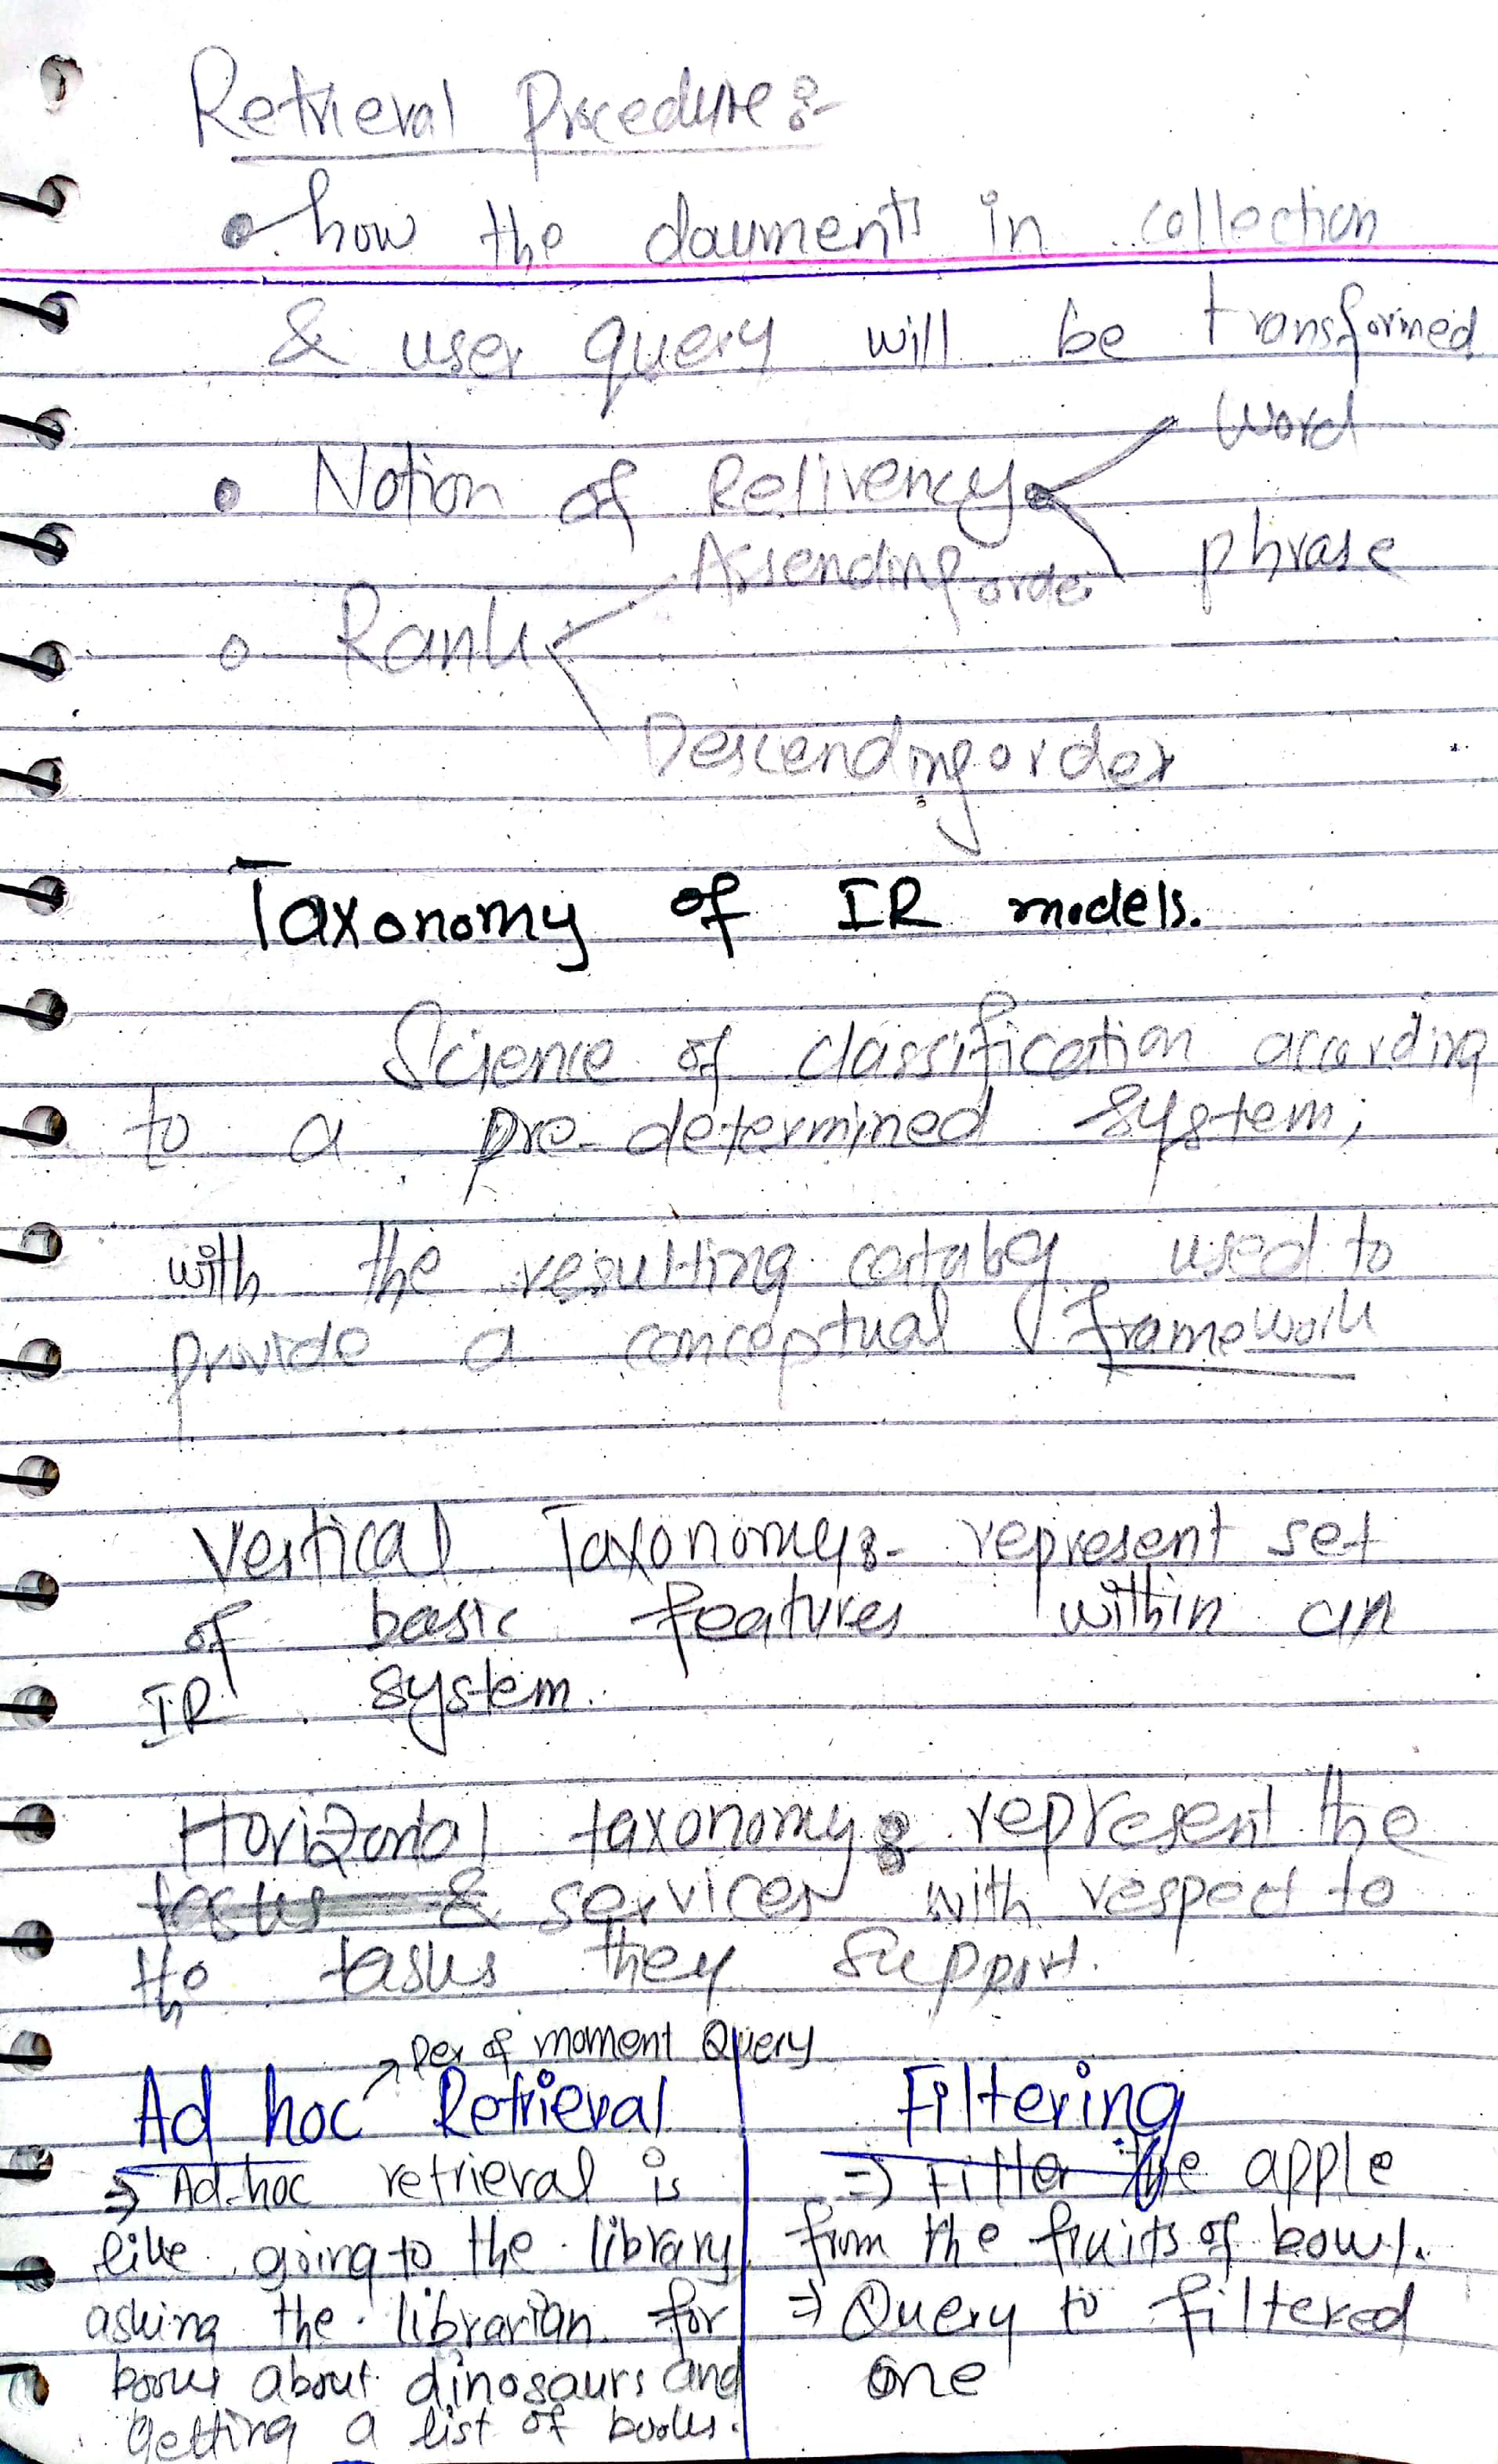 Retrieval Procedure:-
• how the dauments in collection
& user query will be transformed
Word
• Notion of Relivency
phrase
Assending orde
• Rank
Descending order
Taxonomy of IR models.
Science of classification according
to a pre-determined system,
with the resulting catalog used to
provide a conceptual framework
Vertical Taxonomy:- represent set
of basic features within an
IR system.
Horizontal taxonomy: represent the
tasks & services with respect to
the tasks they support.
→ of moment Query
Ad hoc Retrieval
⇒ Ad-hoc retrieval is
like going to the library
asking the librarian for
books about dinosaurs and
getting a list of books.
Filtering
⇒ Filter the apple
from the fruits of bowl.
⇒ Query to filtered
one